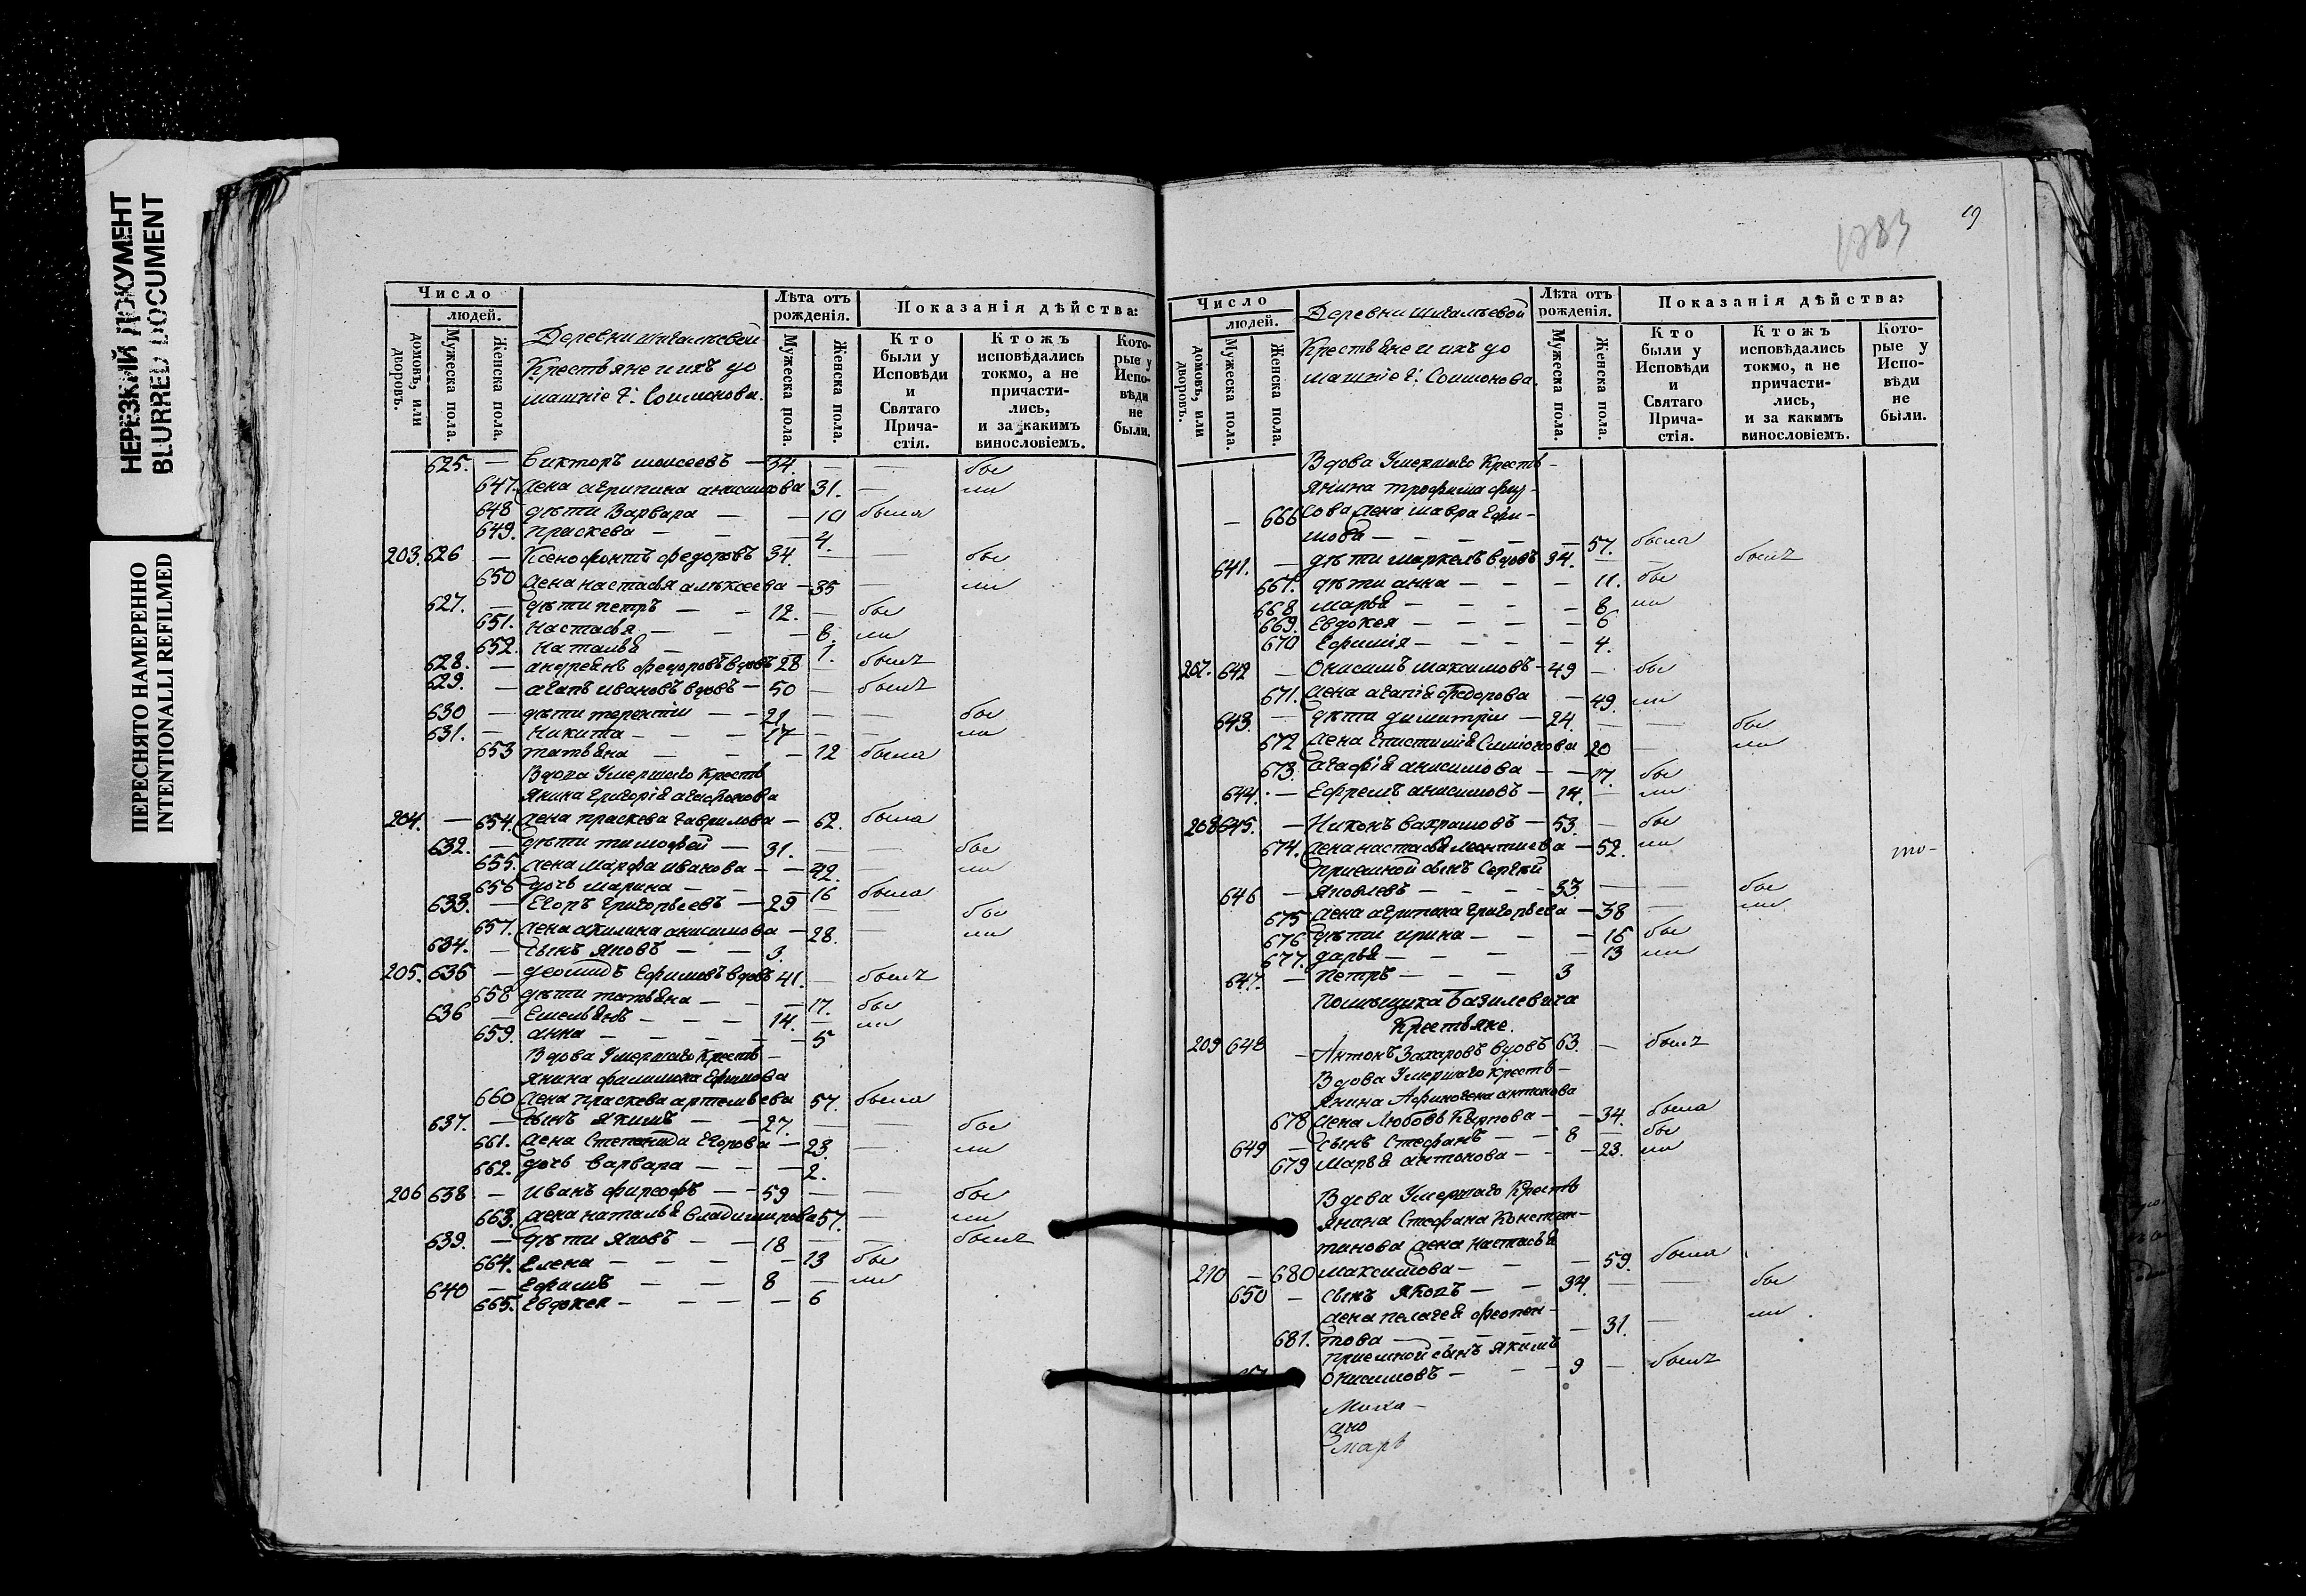 НЕРЕЗКИЙ ДОКУМЕНТ
BLURRED DOCUMENT
ПЕРЕСНЯТО НАМЕРЕННО
INTENTIONALLI REFILMED
Число
людей.
домовъ, или дворовъ.
Мужеска пола.
Женска пола.
Деревни
Крестьяне и ихъ до
машніе Г. Соимонова.
Лѣта отъ рожденія.
Мужеска пола.
Женска пола.
Показанія дѣйства:
Кто были у Исповѣди и Святаго Причастія.
Ктожъ исповѣдались токмо, а не причастились, и за какимъ винословіемъ.
Которые у Исповѣди не были.
625. — Викторъ моисеевъ — 34. — — бы
647. жена агрипина анисимова 31. — ли
648 дѣти Варвара — — 10 была
649. праскева — — — 4.
203. 626 — Ксенофонтъ федоровъ 34. — — бы
650 жена настасья алексеева — 35 — ли
627. — дѣти петръ — — 12. — бы
651. Настасья — — — 8. ли
652. Наталья — — 1.
628. — андреянъ федоровъ вдовъ 28 — былъ
629. — агапъ ивановъ вдовъ — 50 — былъ
630 — дѣти терентіи — — 21 — — бы
631. — Никита — — — 17 — — ли
653 татьяна — — — 12 была
Вдова Умершаго Кресть
янина григорія агафонова
204. — 654. жена праскева гаврилова — 62. была
632. — дѣти тимофей — 31. — — бы
655. жена Марфа иванова — — 42. — ли
656 дочь марина — — — 16 была
633. — Егоръ григорьевъ — 29 — — бы
657. жена акилина анисимова — 28. — ли
634. — сынъ яковъ — — 3.
205. 635 — Ефимовъ вдовъ 41. — былъ
658 дѣти татьяна — — — 17. бы
636 — Емельянъ — — — 14. — ли
659. анна — — — — — 5
Вдова Умершаго Кресть —
янина филимона Ефимова
660 жена праскева артемьева 57. была
637. — сынъ якимъ — — 27. — — бы
661. жена Степанида Егорова — 23. — ли
662. дочь варвара — — — 2.
206 638 — иванъ фирсофъ — — 59 — — бы
663. жена наталья владимирова 57. — ли
639. — дѣти яковъ — — 18 — — былъ
664. Елена — — — — 13 бы
640 — Ефимъ — — 8 — ли
665. Евдокея — — — — 6
1783
19
Число
людей.
домовъ, или дворовъ.
Мужеска пола.
Женска пола.
Деревни
Крестьяне и ихъ до
машніе Г. Соимонова.
Лѣта отъ рожденія.
Мужеска пола.
Женска пола.
Показанія дѣйства:
Кто были у Исповѣди и Святаго Причастія.
Ктожъ исповѣдались токмо, а не причастились, и за какимъ винословіемъ.
Которые у Исповѣди не были.
Вдова Умершаго Кресть —
янина трофима фир-
— 666 сова жена мавра Ефи-
мова — — — — — 57. была
641. — дѣти маркелъ вдовъ 34. — — былъ
667. дѣти анна — — — 11. бы
668 марья — — — — 8 ли
669. Евдокея — — — — 6
670 Ефимія — — — — 4.
207. 642 — Онисимъ максимовъ — 49 — бы
671. жена агапія федорова — 49. ли
643. — дѣти димитріи — 24. — — бы
672 жена Епистимія Симионова 20 — ли
673. агафія анисимова — — 17. бы
644. — Ефремъ анисимовъ — 14. — ли
208 645. — Никонъ вахрамовъ — 53. — бы
674. жена настасья леонтиева — 52. ли
приемной сынъ Сергѣй
646 — Яковлевъ — — — — 33. — — бы
675 жена агрипена григорьева — 38 — ли
676 дѣти ирина — — — 16 бы
677. дарья — — — — 13 ли
647. — Петръ — — — 3
то-
Помѣщика Базилевича
Крестьяне.
209 648 — Антонъ Захаровъ вдовъ 63. — былъ
Вдова Умершаго Кресть —
янина Афиногена антонова
678 жена Любовь Карпова — — 34. была
649 — сынъ Стефанъ — — 8 — бы
679 Марья антонова — — — 23. ли
Вдова Умершаго Кресть
янина Стефана Констан-
тинова жена Настасья
210 — 680 максимова — — — 59. была
650 — сынъ яковъ — — 34. — — бы
жена пелагея феопен-
681. това — — — — — 31. — ли
приемной сынъ якимъ
Онисимовъ — — — 9 — былъ